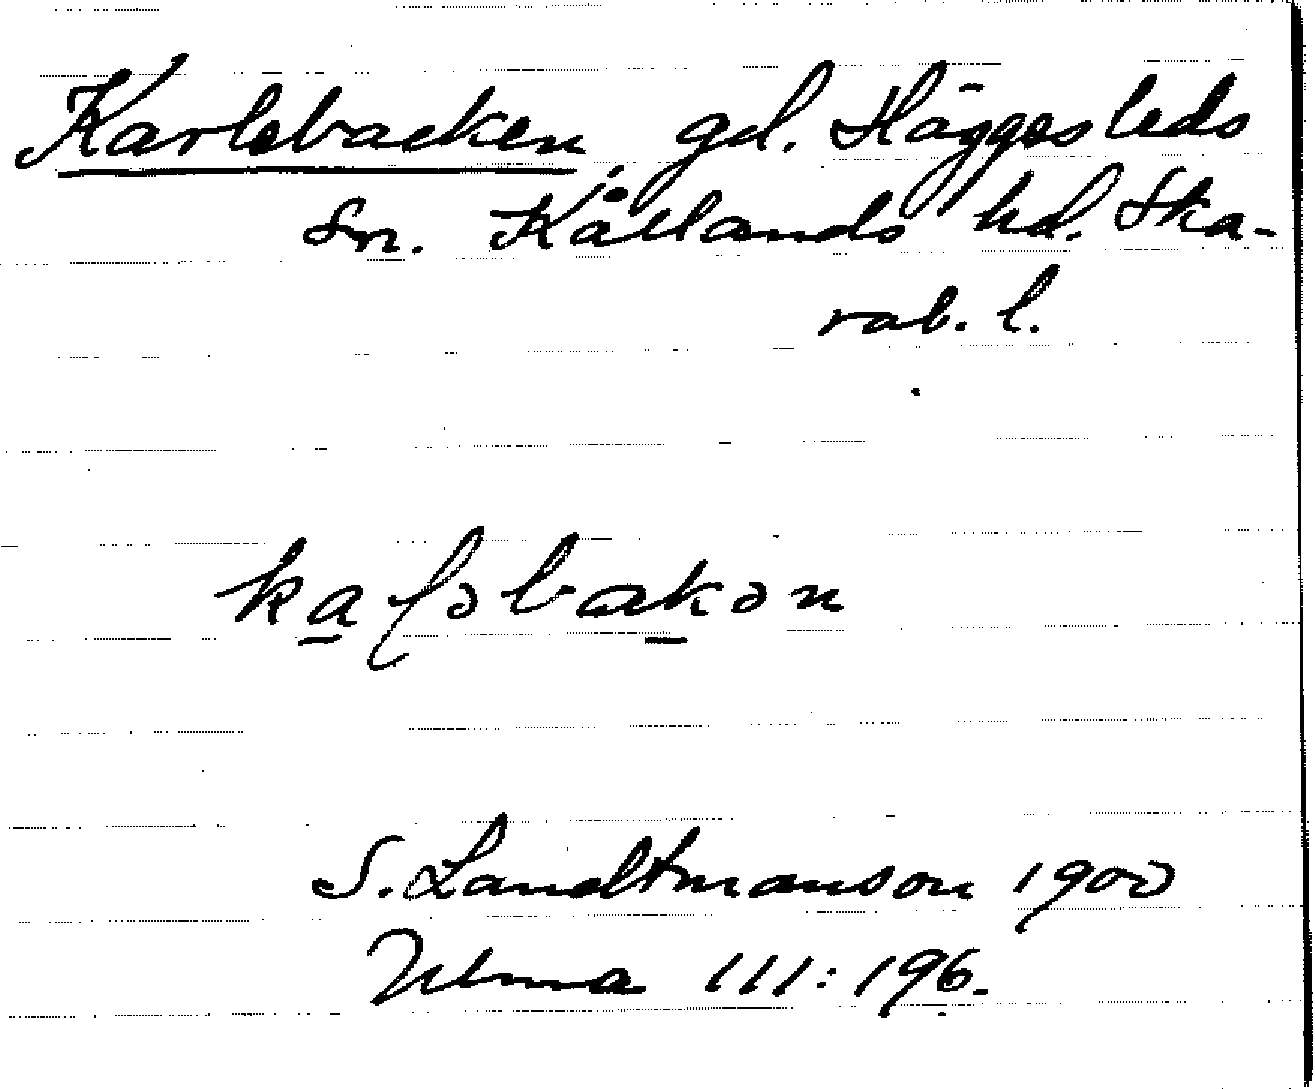 Karlebacken, gd. Häggesleds
sn. Kållands hd. Ska-
rab. l.
kaɭəbakən
S. Landtmanson 1900
Ulma 111:196.